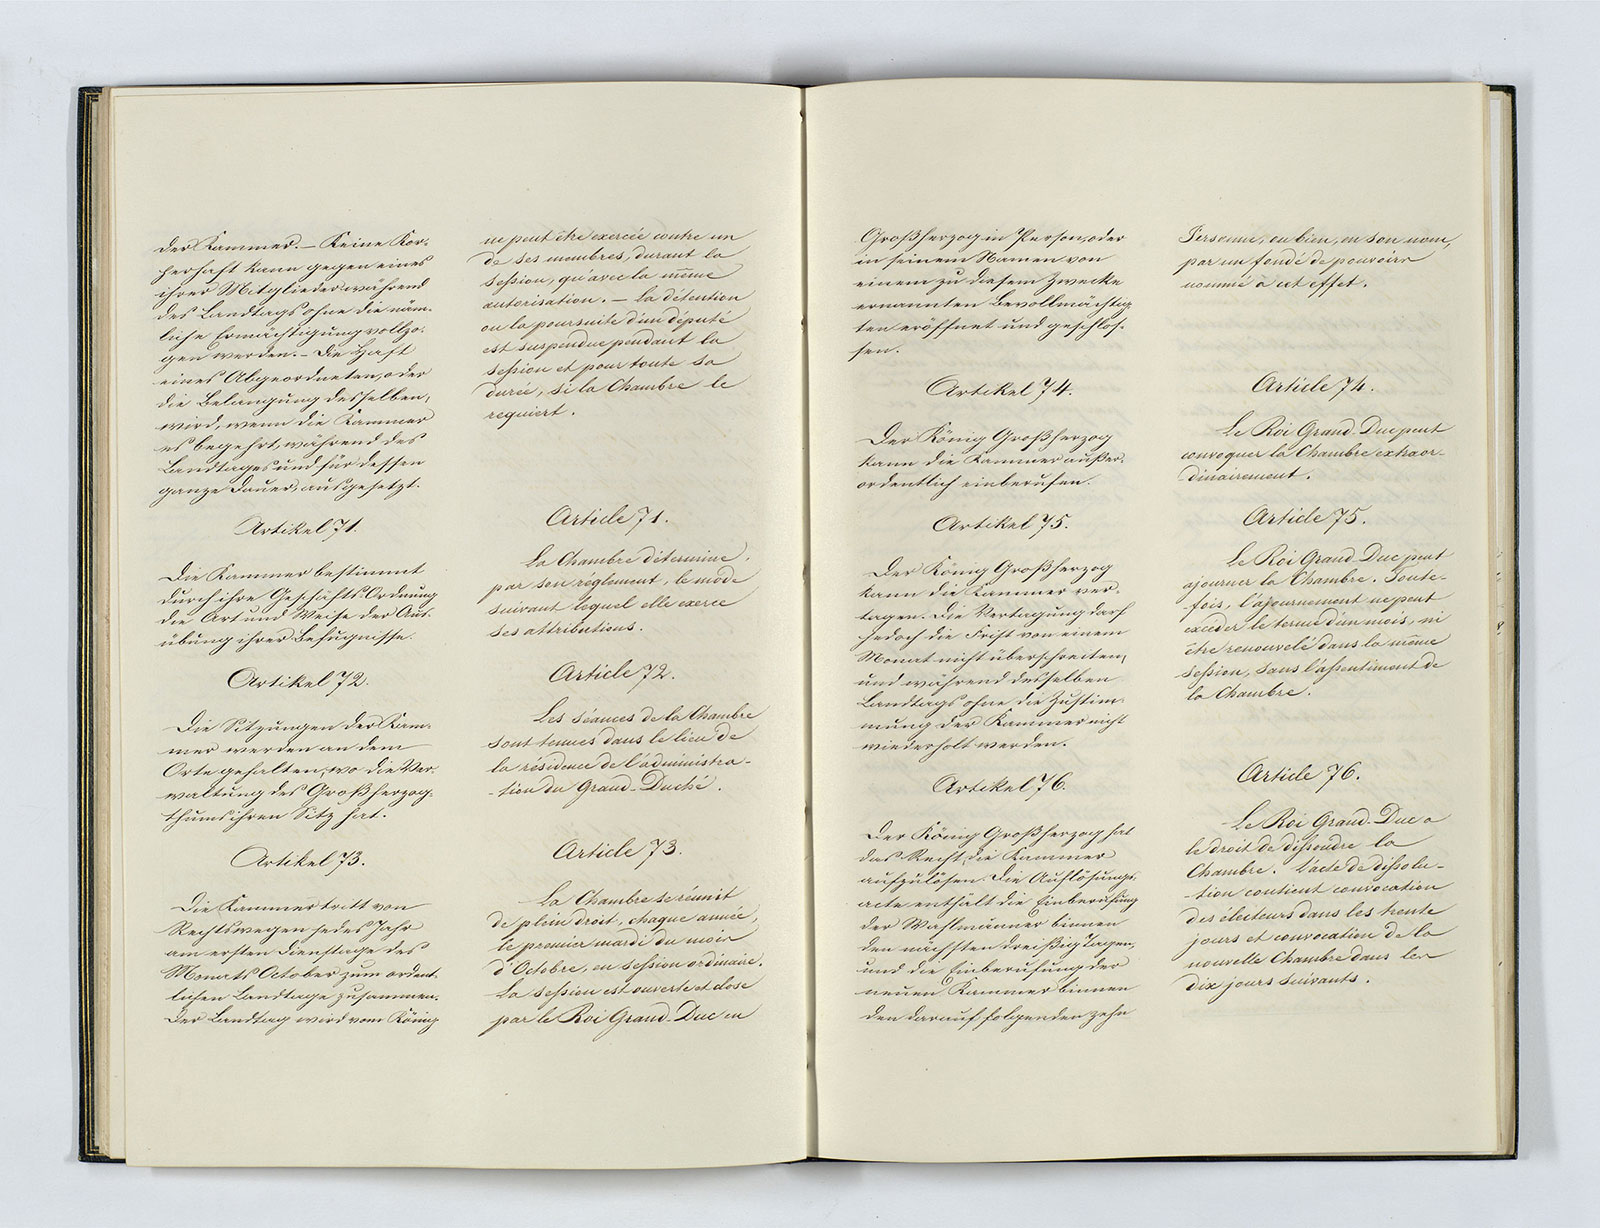 der Kammer. — Keine Kör-
perhaft kann gegen eines
ihrer Mitglieder während
des Landtags ohne die näm-
liche Ermächtigung vollzo-
gen werden. — Die Haft
eines Abgeordneten, oder
die Belangung desselben,
wird, wenn die Kammer
es begehrt, während des
Landtages und für dessen
ganze Dauer, ausgesetzt.
Artikel 71.
Die Kammer bestimmt
durch ihre Geschäfts Ordnung
die Art und Weise der Aus-
übung ihrer Befugnisse.
Artikel 72.
Die Sitzungen der Kam-
mer werden an dem
Orte gehalten, wo die Ver-
waltung des Großherzog-
thums ihren Sitz hat.
Artikel 73.
Die Kammer tritt von
Rechtswegen jedes Jahr
am ersten Dienstage des
Monats October zum ordent-
lichen Landtage zusammen.
Der Landtag wird vom König
ne peut être exercée contre un
de ses membres, durant la
session, qu'avec la même
autorisation. — la détention
ou la poursuite d'un député
est suspendue pendant la
session et pour toute sa
durée, si la Chambre le
requiert.
Article 71.
La Chambre détermine,
par son réglement, le mode
suivant lequel elle exerce
ses attributions.
Article 72.
Les séances de la Chambre
sont tenues dans le lieu de
la résidence de l'administra-
-tion du Grand-Duché.
Article 73.
La Chambre se réunit
de plein droit, chaque année,
le premier mardi du mois
d'Octobre, en session ordinaire.
La session est ouverte et close
par le Roi Grand-Duc en
Großherzog in Person, oder
in seinem Namen von
einem zu diesem Zwecke
ernannten Bevollmächtig-
ten eröffnet und geschlos-
sen.
Artikel 74.
Der König Großherzog
kann die Kammer außer-
ordentlich einberufen.
Artikel 75.
Der König Großherzog
kann die Kammer ver-
tagen. Die Vertagung darf
jedoch die Frist von einem
Monat nicht überschreiten,
und während desselben
Landtags ohne die Zustim-
mung der Kammer nicht
wiederholt werden.
Artikel 76.
Der König Großherzog hat
das Recht, die Kammer
aufzulösen. Die Auflösungs-
acte enthält die Einberufung
der Wahlmänner binnen
den nächsten dreißig Tagen,
und die Einberufung der
neuen Kammer binnen
den darauf folgenden zehn
Personne, ou bien, en son nom,
par un fondé de pouvoirs
nommé à cet effet.
Article 74.
Le Roi Grand-Duc peut
convoquer la Chambre extraor-
dinairement.
Article 75.
Le Roi Grand-Duc peut
ajourner la Chambre. Toute-
fois, l'ajournement ne peut
excéder le terme d'un mois, ni
être renouvelé dans la même
session, sans l'assentiment de
la Chambre.
Article 76.
Le Roi Grand-Duc a
le droit de dissoudre la
Chambre. L'acte de dissolu-
-tion contient convocation
des électeurs dans les trente
jours et convocation de la
nouvelle Chambre dans les
dix jours suivants.